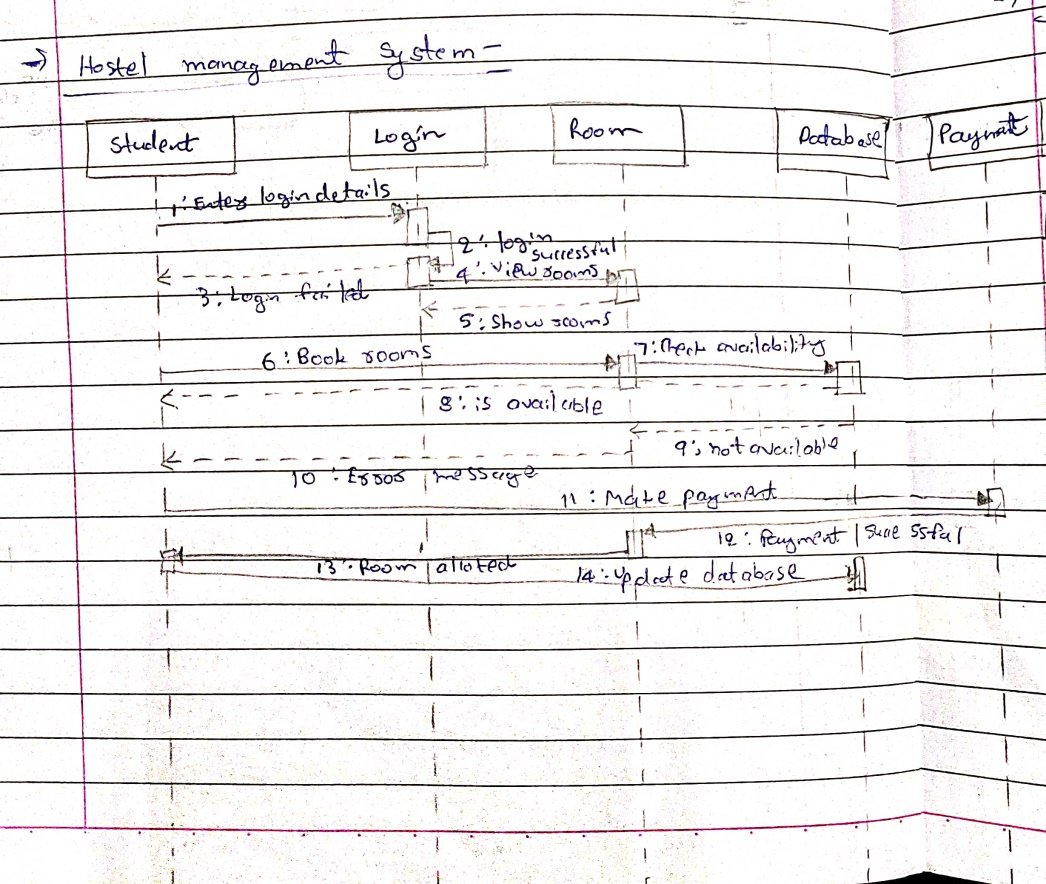 → Hostel management System -
Student
Login
Room
Database
Payment
1: Enters login details
2: login
successful
4: View rooms
3: Login failed
5: Show rooms
6: Book rooms
7: Check availability
8: is available
9: not available
10: Error message
11: Make payment
12: Payment successful
13: Room alloted
14: Update database